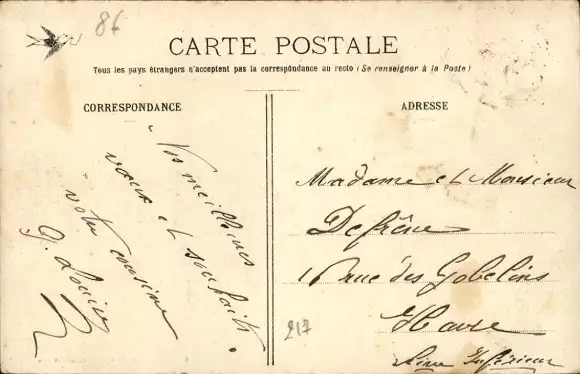 86
CARTE POSTALE
Tous les pays étrangers n'acceptent pas la correspondance au recto (Se renseigner à la Poste)
CORRESPONDANCE
Vos meilleures
vœux et souhaits.
votre cousine
G. Louise
ADRESSE
Madame et Monsieur
Defrêne
16 rue des Gobelins
Havre
Seine Inférieure
217